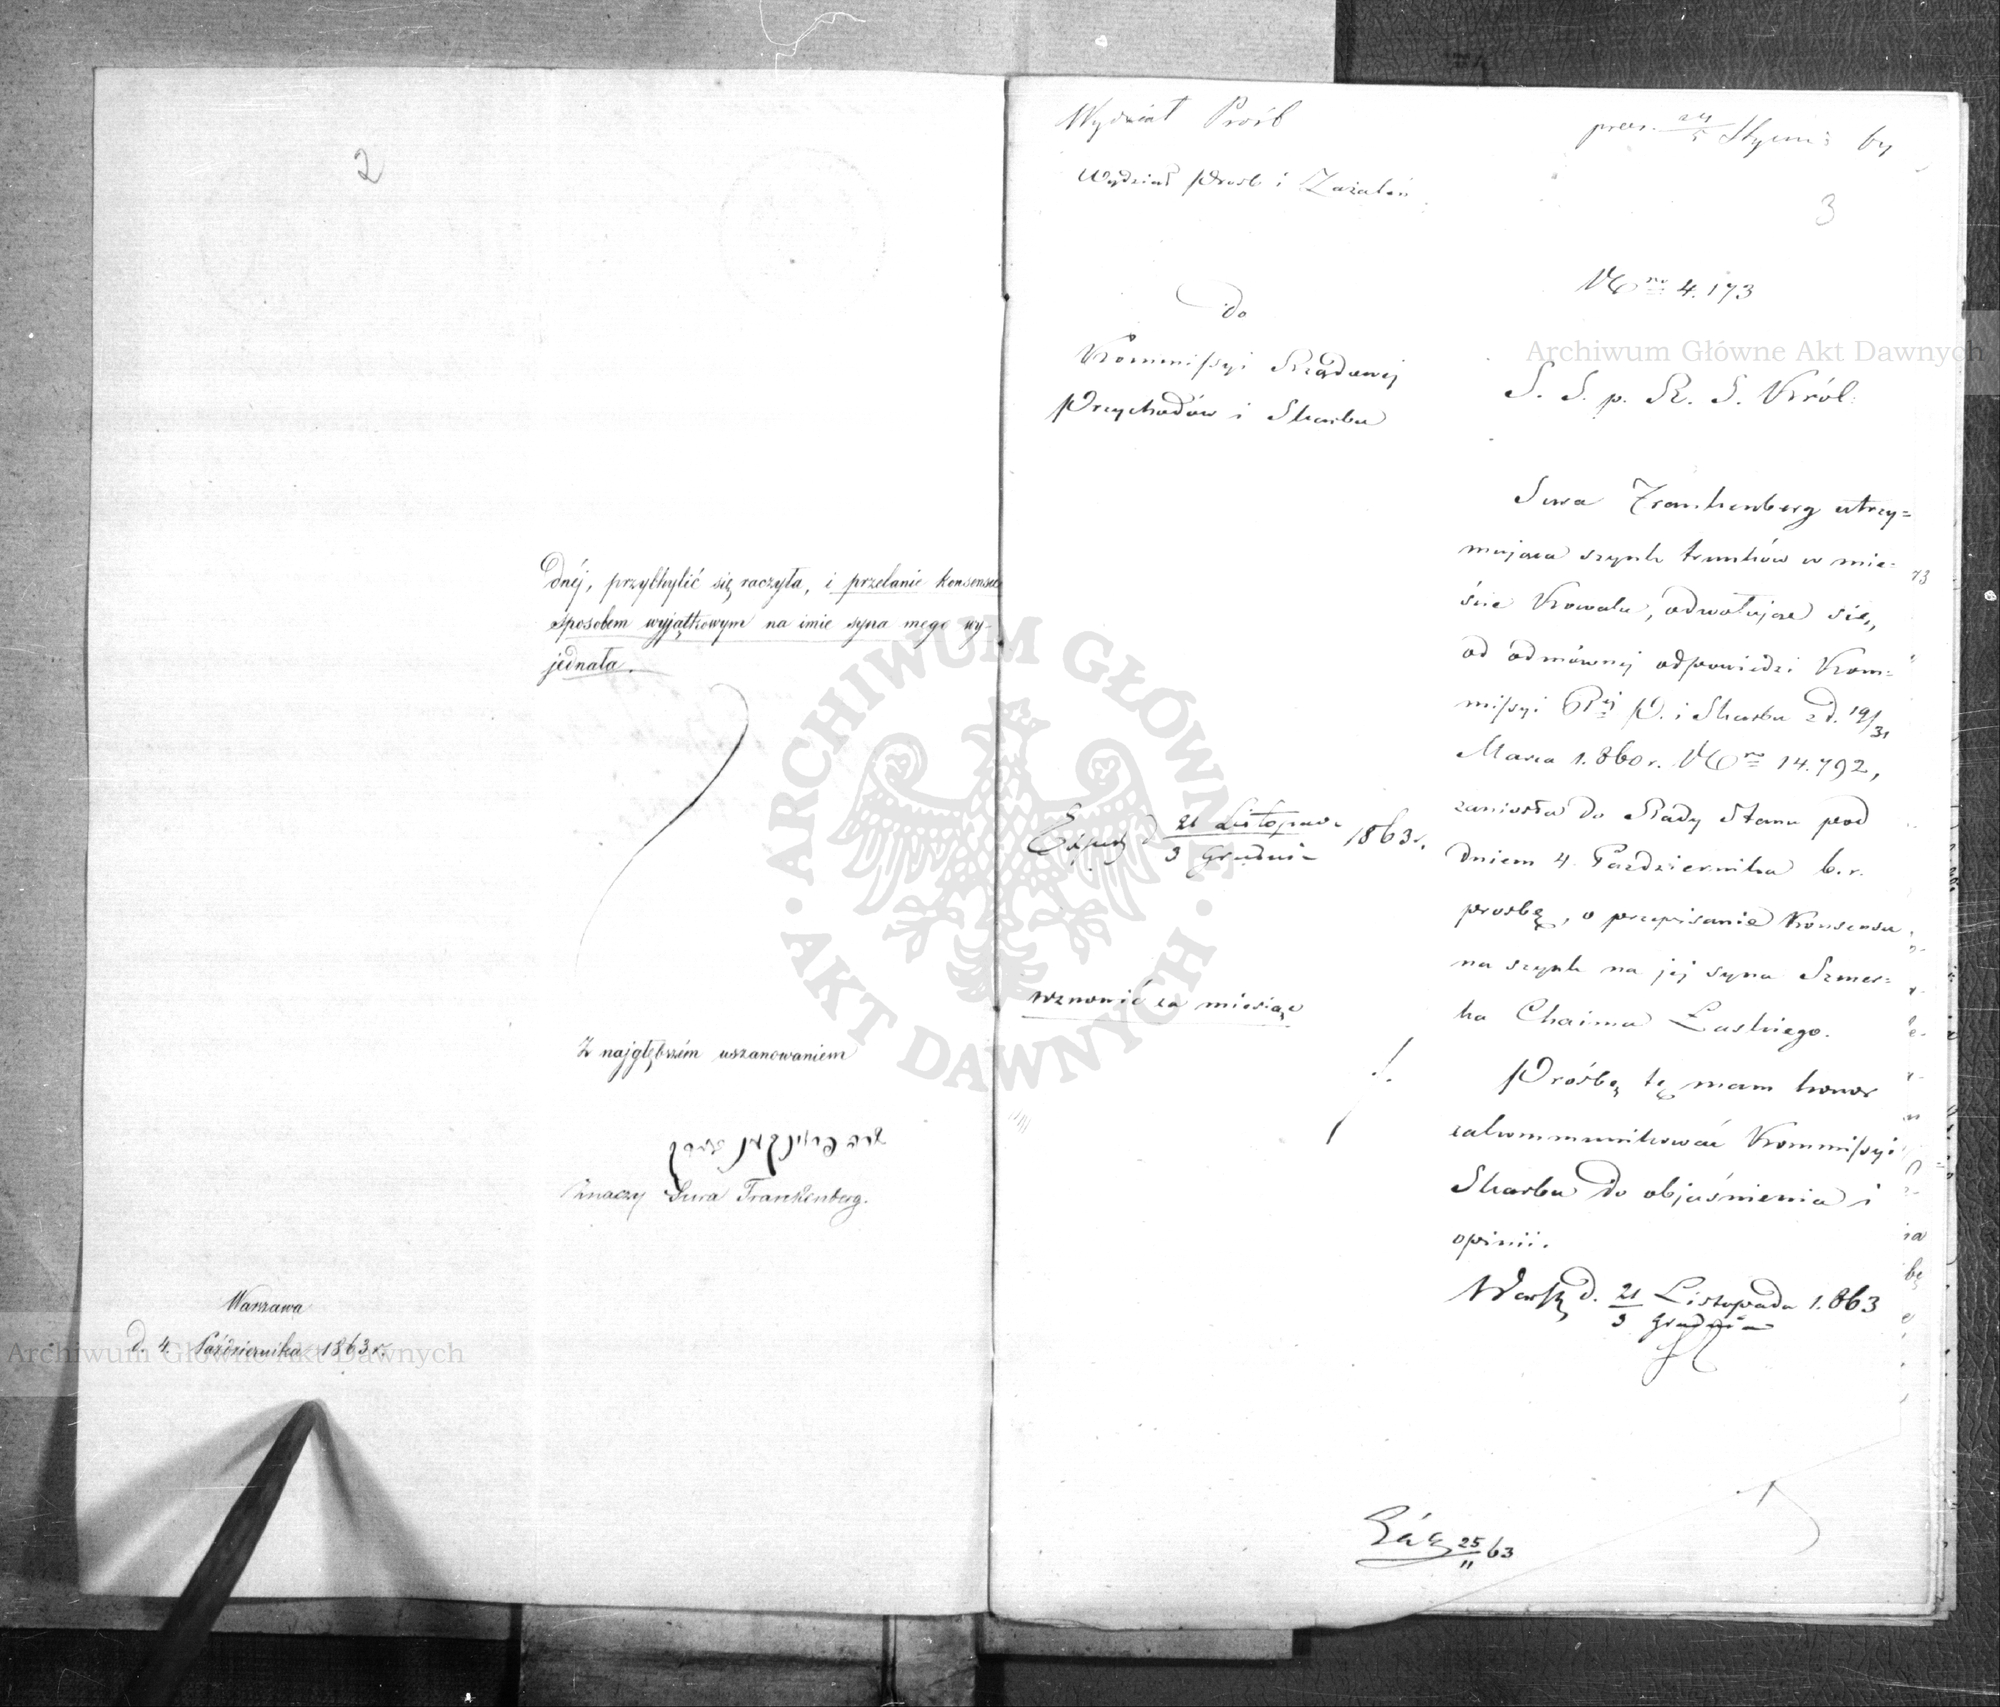 2
dnéj, przychylić się raczyła, i przelanie konsensu
sposobem wyjątkowym na imie syna mego wy-
jednała.
Z najgłębszém uszanowaniem
Znaczy Sura Frankenberg.
Warszawa
d. 4. Października 1863 r.
Wydział Próśb
Wydział Prosb i Zażaleń
3
do
Kommissyi Rządowej
Przychodów i Skarbu
Nro 4.173
S. S. p. R. S. Król.
Sura Frankenberg utrzy=
mująca szynk trunków w mie-
ście Kowalu, odwołując się,
od odmównej odpowiedzi Kom=
missyi P. i Skarbu z d. 19/31
Marca 1.860 r. Nro 14.792,
zaniosła do Rady Stanu pod
dniem 4. Października b. r.
prosbę, o przepisanie Konsensu
na szynk na jej syna Szmer=
ka Chaima Laskiego.
Prośbę tę mam honor
zakommunikować Kommissyi
Skarbu do objaśnienia i
opinii.
d. 21 Listopada 1.863
3 Grudnia
d 21 Listopada 1863 r.
3 Grudnia
wznowić za miesiąc
25/11 63
Archiwum Główne Akt Dawnych
Archiwum Główne Akt Dawnych
ARCHIWUM GŁÓWNE
AKT DAWNYCH